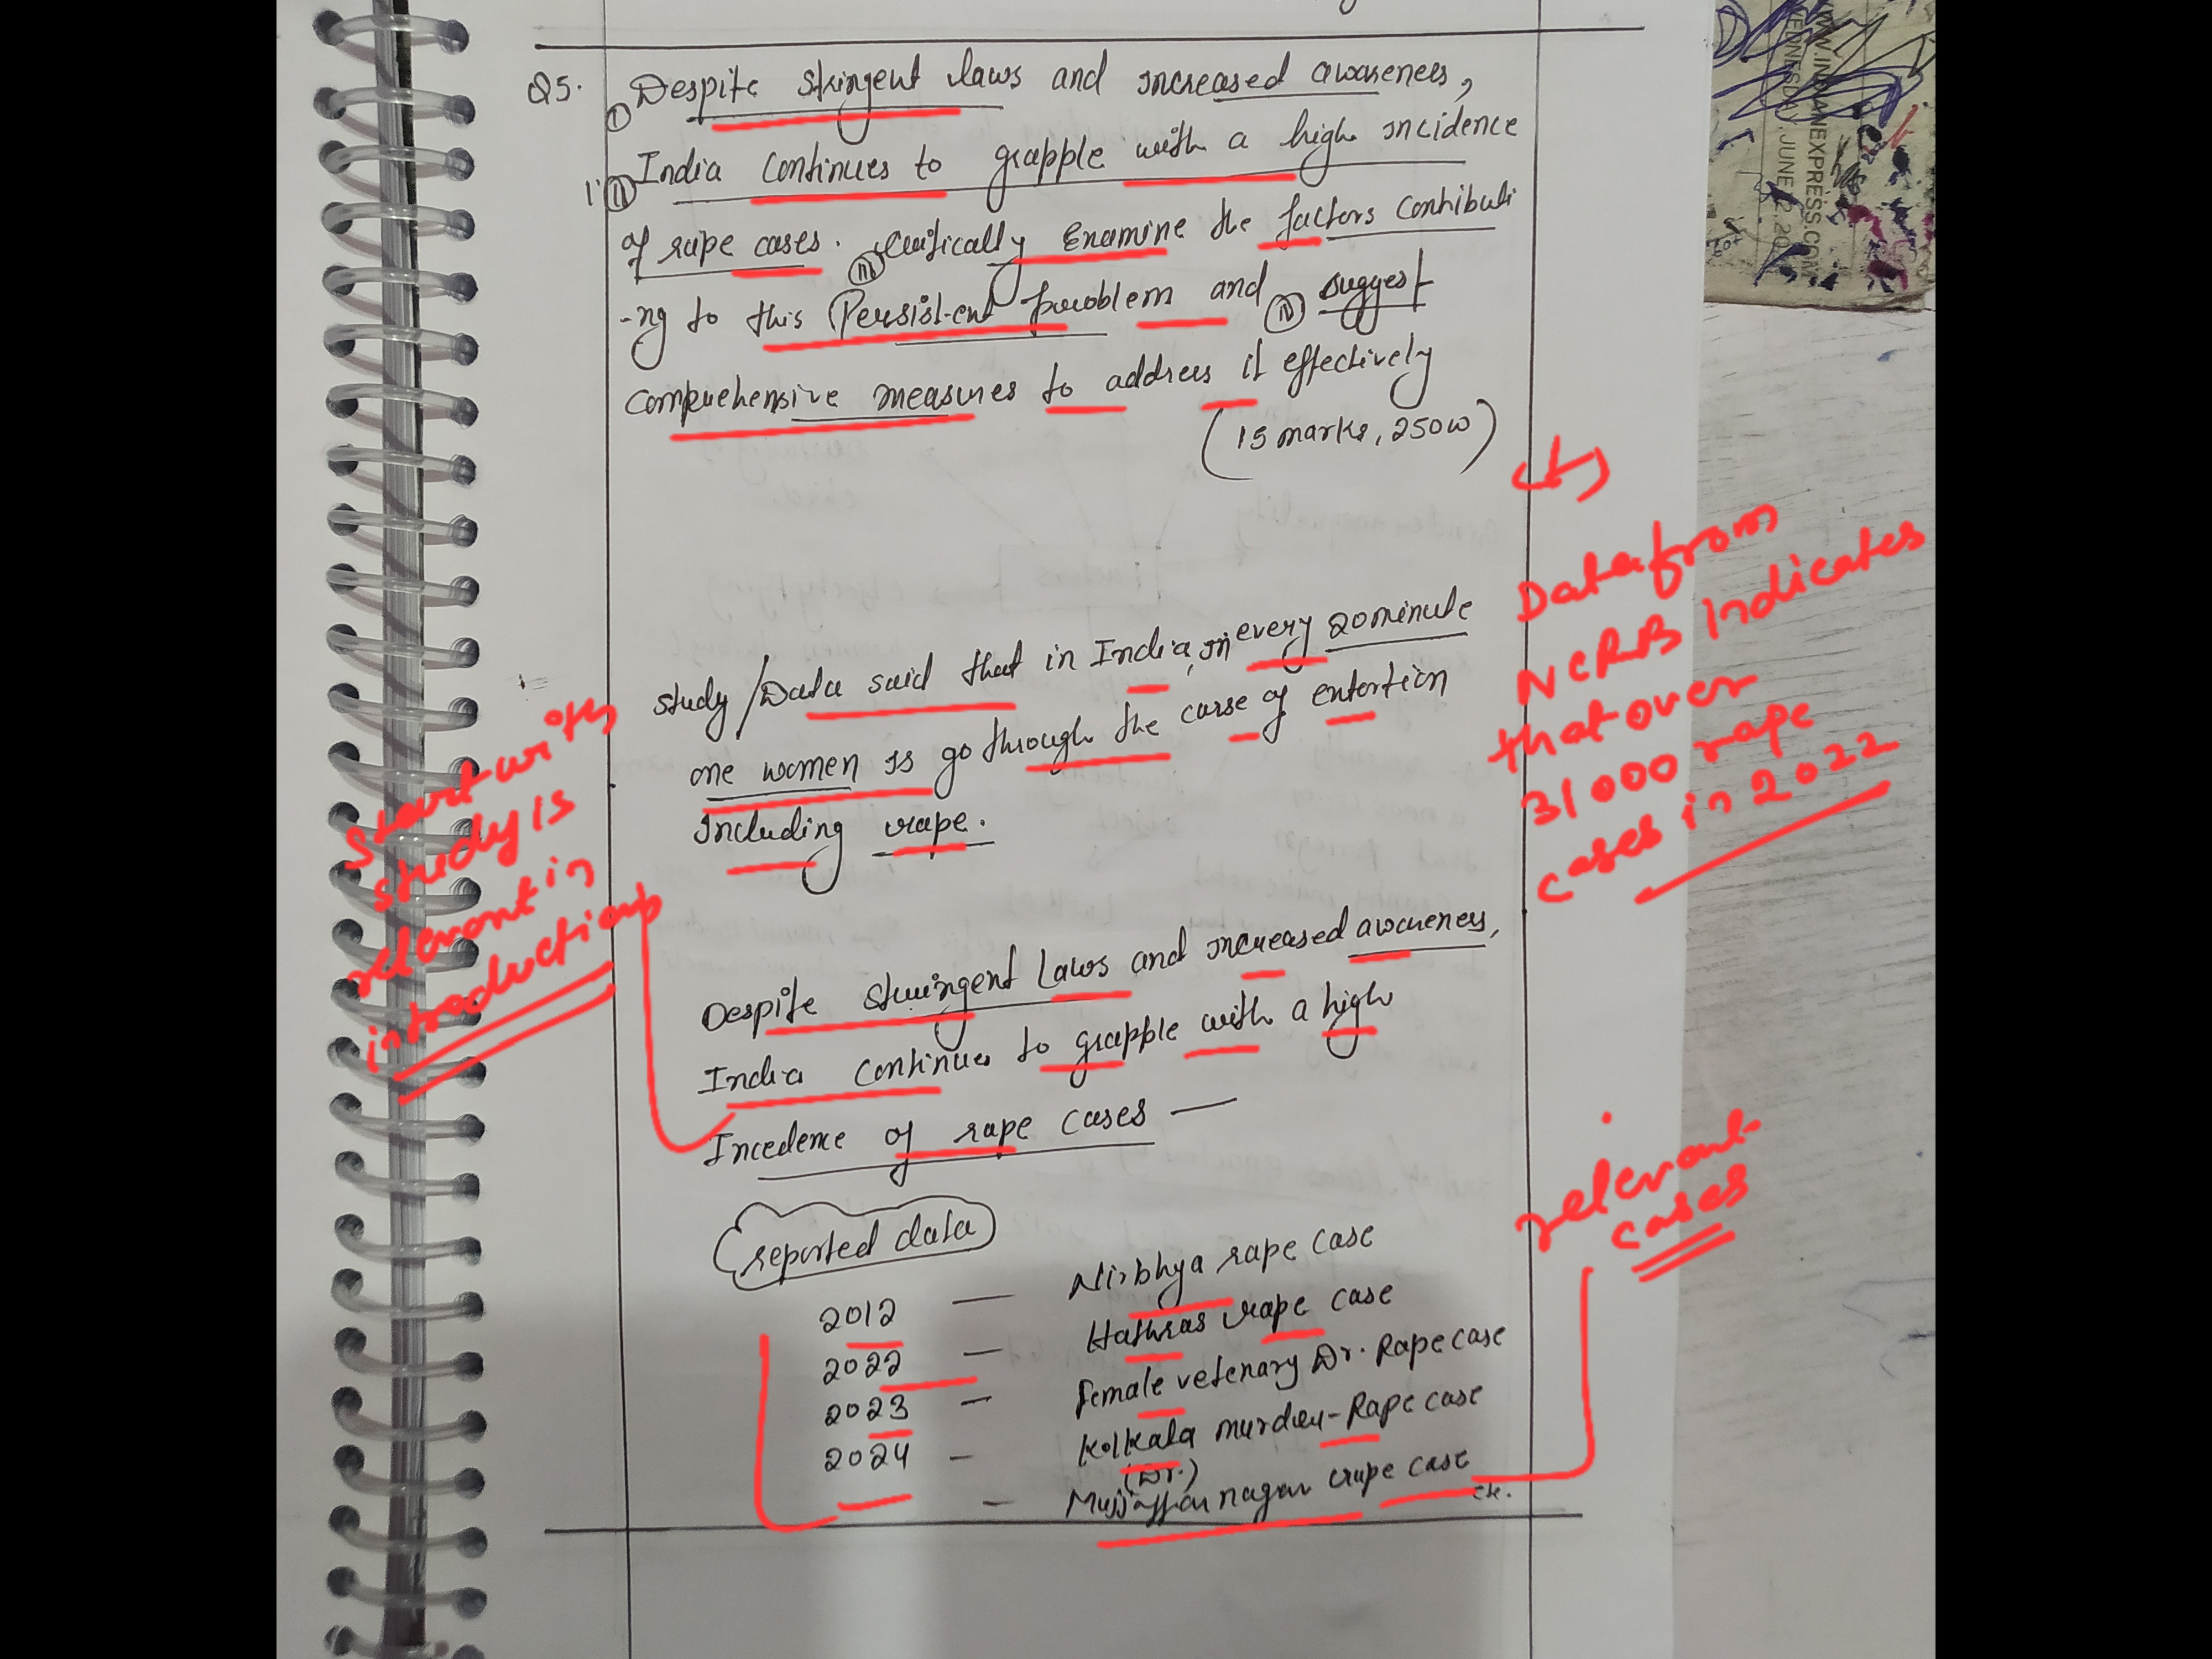 Q5. Despite stringent laws and increased awareness,
India continues to grapple with a high incidence
of rape cases. Critically Examine the factors contributi
-ng to this Persist-ent problem and suggest
comprehensive measures to address it effectively
(15 marks, 250w)
Study/Data said that in India, in every 20 minute
one women is go through the curse of extortion
Including rape.
Despite stringent Laws and increased awareness,
India continues to grapple with a high
Incedence of rape cases —
reported data
2012 — Nirbhya rape case
2022 — Hathras rape case
2023 — Female vetenary Dr. Rape case
2024 — Kolkata murder-Rape case
(Dr.)
— Mujjaffarnagar rape case
etc.
Start with
study is
relevant in
introduction
Data from
NCRB indicates
that over
31000 rape
cases in 2022
relevant
cases
WWW.INDIANEXPRESS.COM
WEDNESDAY, JUNE 12, 20